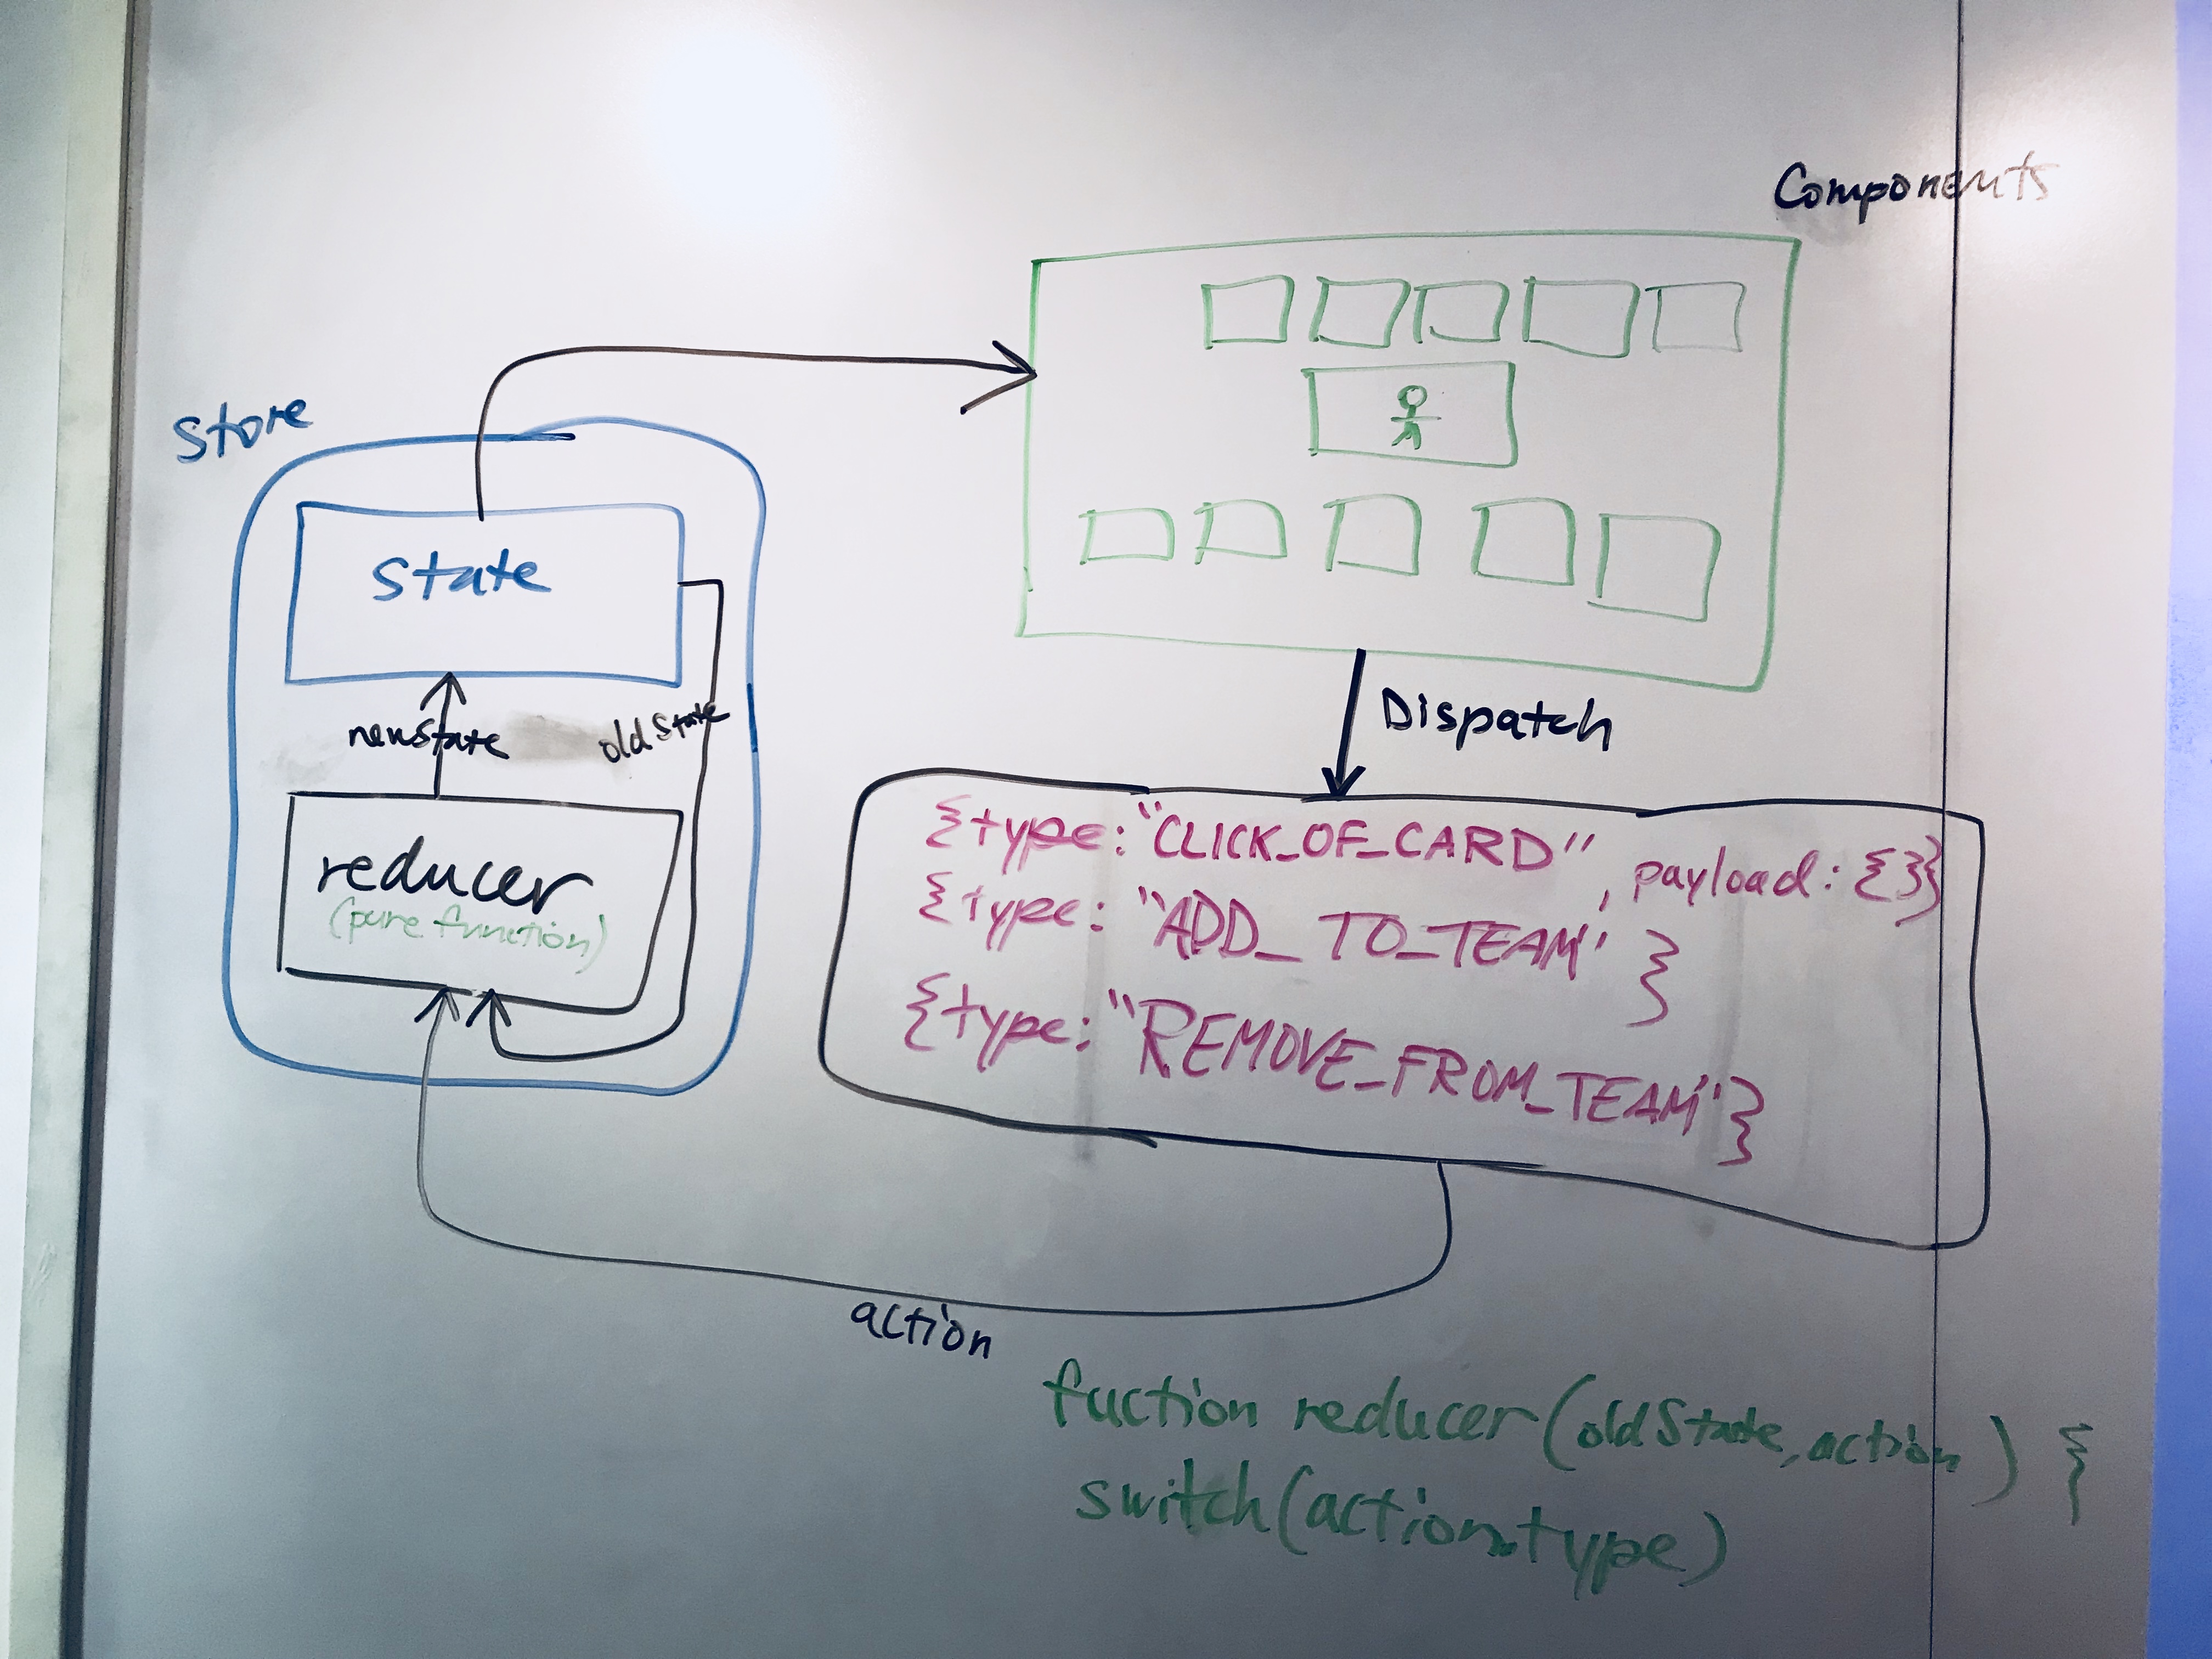 Components
Store
state
newState
oldState
reducer
(pure function)
Dispatch
{type: "CLICK_OF_CARD", payload: {}}
{type: "ADD_TO_TEAM" }
{type: "REMOVE_FROM_TEAM"}
action
fuction reducer(oldState, action) {
switch(action.type)